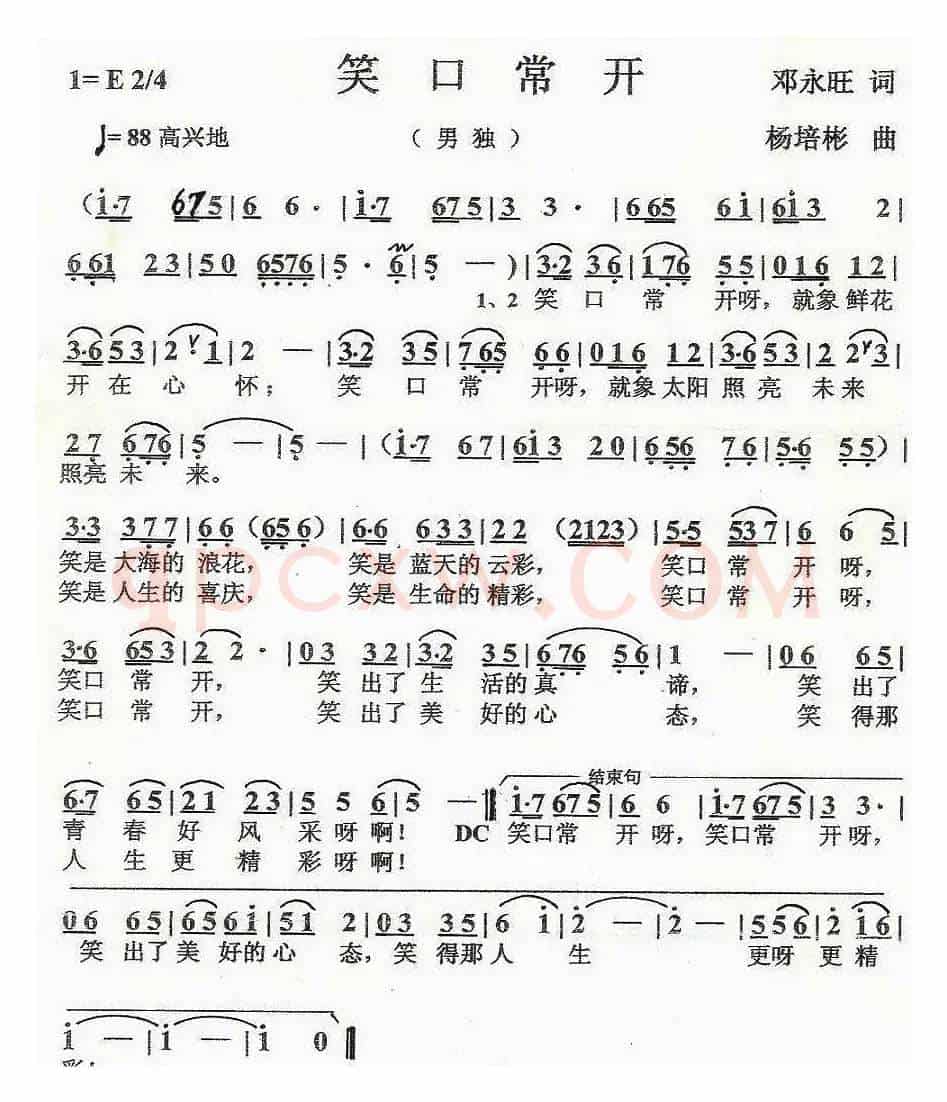 1=E 2/4 笑口常开 邓永旺 词
♩=88 高兴地 （男独） 杨培彬 曲
（i·7 675|6 6·|i·7 675|3 3·|665 6i|6i3 2|
661 23|50 6576|5· 6|5 —）|3·2 36|176 55|016 12|
1、2 笑 口 常 开呀，就象鲜花
3·653|2·1|2 —|3·2 35|765 66|016 12|3·653|2 23|
开在心怀；笑口常开呀，就象太阳照亮未来
27 676|5 —|5 —|（i·7 67|6i3 20|656 76|5·6 55）|
照亮未来。
3·3 377|66（656）|6·6 633|22（2123）|5·5 537|6 6 5|
笑是大海的浪花，笑是蓝天的云彩，笑口常开呀，
笑是人生的喜庆，笑是生命的精彩，笑口常开呀，
qpcxw.com
3·6 653|2 2·|03 32|3·2 35|676 56|1 —|06 65|
笑口常开，笑出了生活的真谛，笑出了
笑口常开，笑出了美好的心态，笑得那
结束句
6·7 65|21 23|5 5 6|5 —‖i·7675|6 6|i·7675|3 3·|
青春好风采呀啊！ DC 笑口常开呀，笑口常开呀，
人生更精彩呀啊！
06 65|656i|51 2|03 35|6 i|2 —|2 —|556|2 i6|
笑出了美好的心态，笑得那人生更呀更精
i —|i —|i 0‖